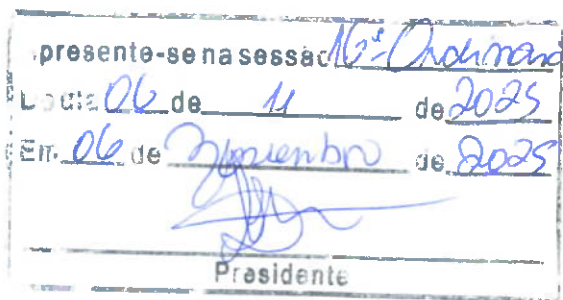 presente-se na sessão 16ª Ordinária
de 06 de 11 de 2025
Em 06 de Novembro de 2025
Presidente